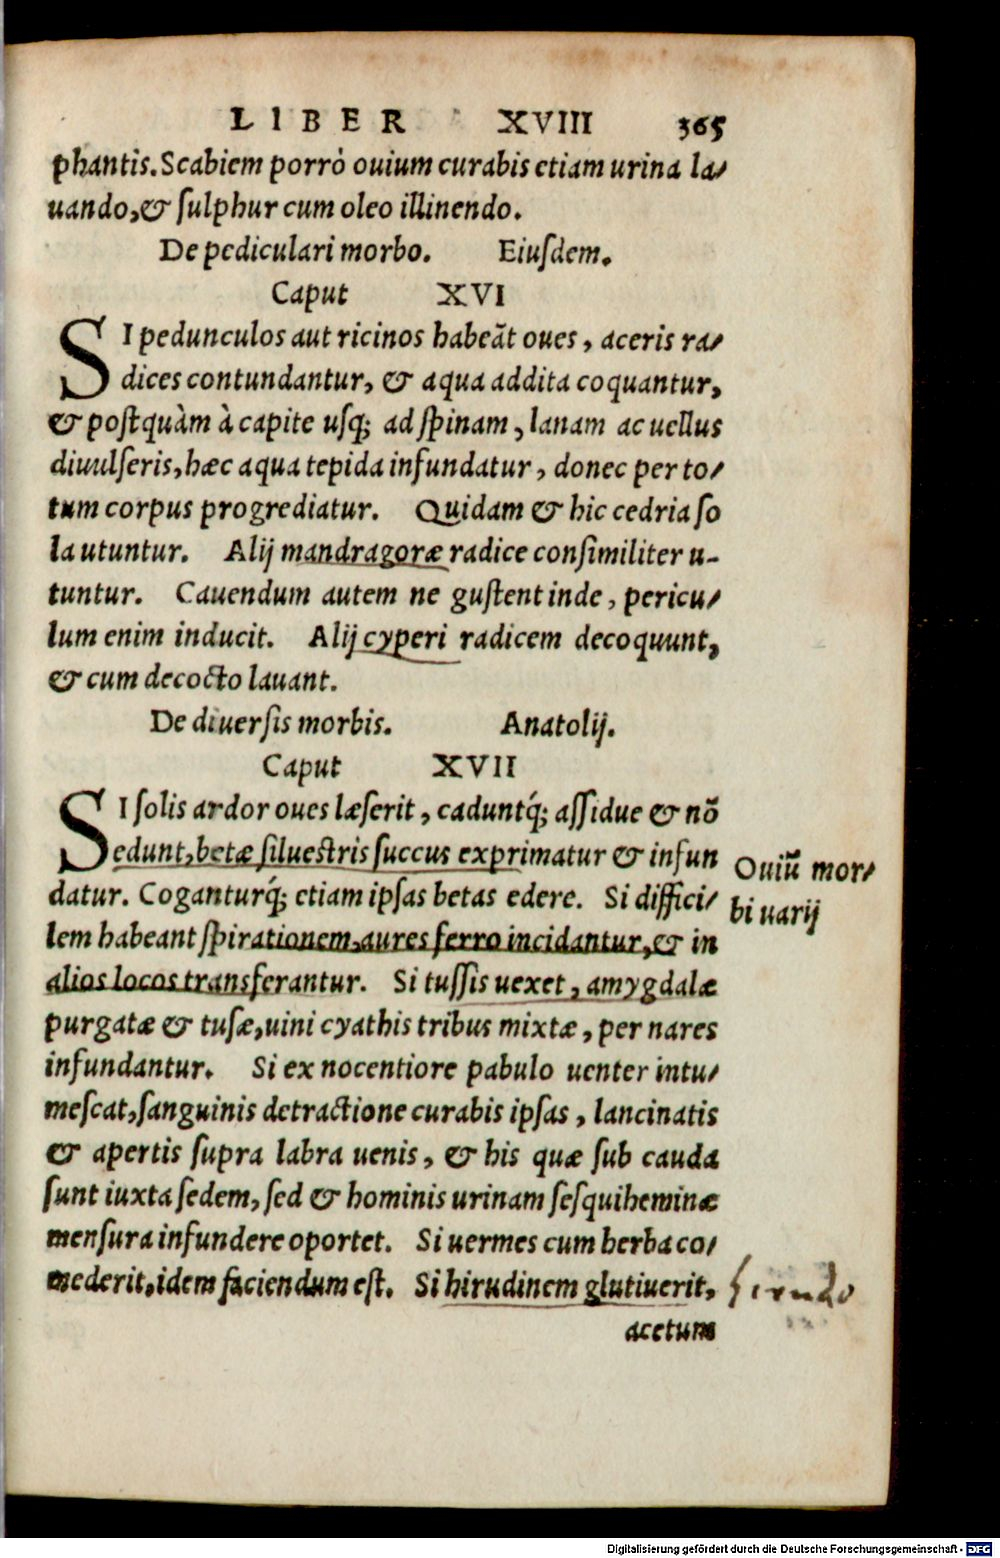 LIBER XVIII 365
phantis. Scabiem porrò ouium curabis etiam urina la/
uando, & ſulphur cum oleo illinendo.
De pediculari morbo. Eiuſdem.
Caput XVI
SI pedunculos aut ricinos habeãt oues, aceris ra/
dices contundantur, & aqua addita coquantur,
& poſtquàm à capite uſq; ad ſpinam, lanam ac uellus
diuulſeris, hæc aqua tepida infundatur, donec per to/
tum corpus progrediatur. Quidam & hic cedria ſo
la utuntur. Alij mandragoræ radice conſimiliter u-
tuntur. Cauendum autem ne guſtent inde, pericu/
lum enim inducit. Alij cyperi radicem decoquunt,
& cum decocto lauant.
De diuerſis morbis. Anatolij.
Caput XVII
SI ſolis ardor oues læſerit, caduntq́; aſſidue & nõ
edunt, betæ ſilueſtris ſuccus exprimatur & infun
datur. Coganturq́; etiam ipſas betas edere. Si diffici/
lem habeant ſpirationem, aures ferro incidantur, & in
alios locos transferantur. Si tuſſis uexet, amygdalæ
purgatæ & tuſæ, uini cyathis tribus mixtæ, per nares
infundantur. Si ex nocentiore pabulo uenter intu/
meſcat, ſanguinis detractione curabis ipſas, lancinatis
& apertis ſupra labra uenis, & his quæ ſub cauda
ſunt iuxta ſedem, ſed & hominis urinam ſeſquiheminæ
menſura infundere oportet. Si uermes cum herba co/
mederit, idem faciendum eſt. Si hirudinem glutiuerit,
acetum
Ouiũ mor/
bi uarij
hirudo
Digitalisierung gefördert durch die Deutsche Forschungsgemeinschaft - DFG